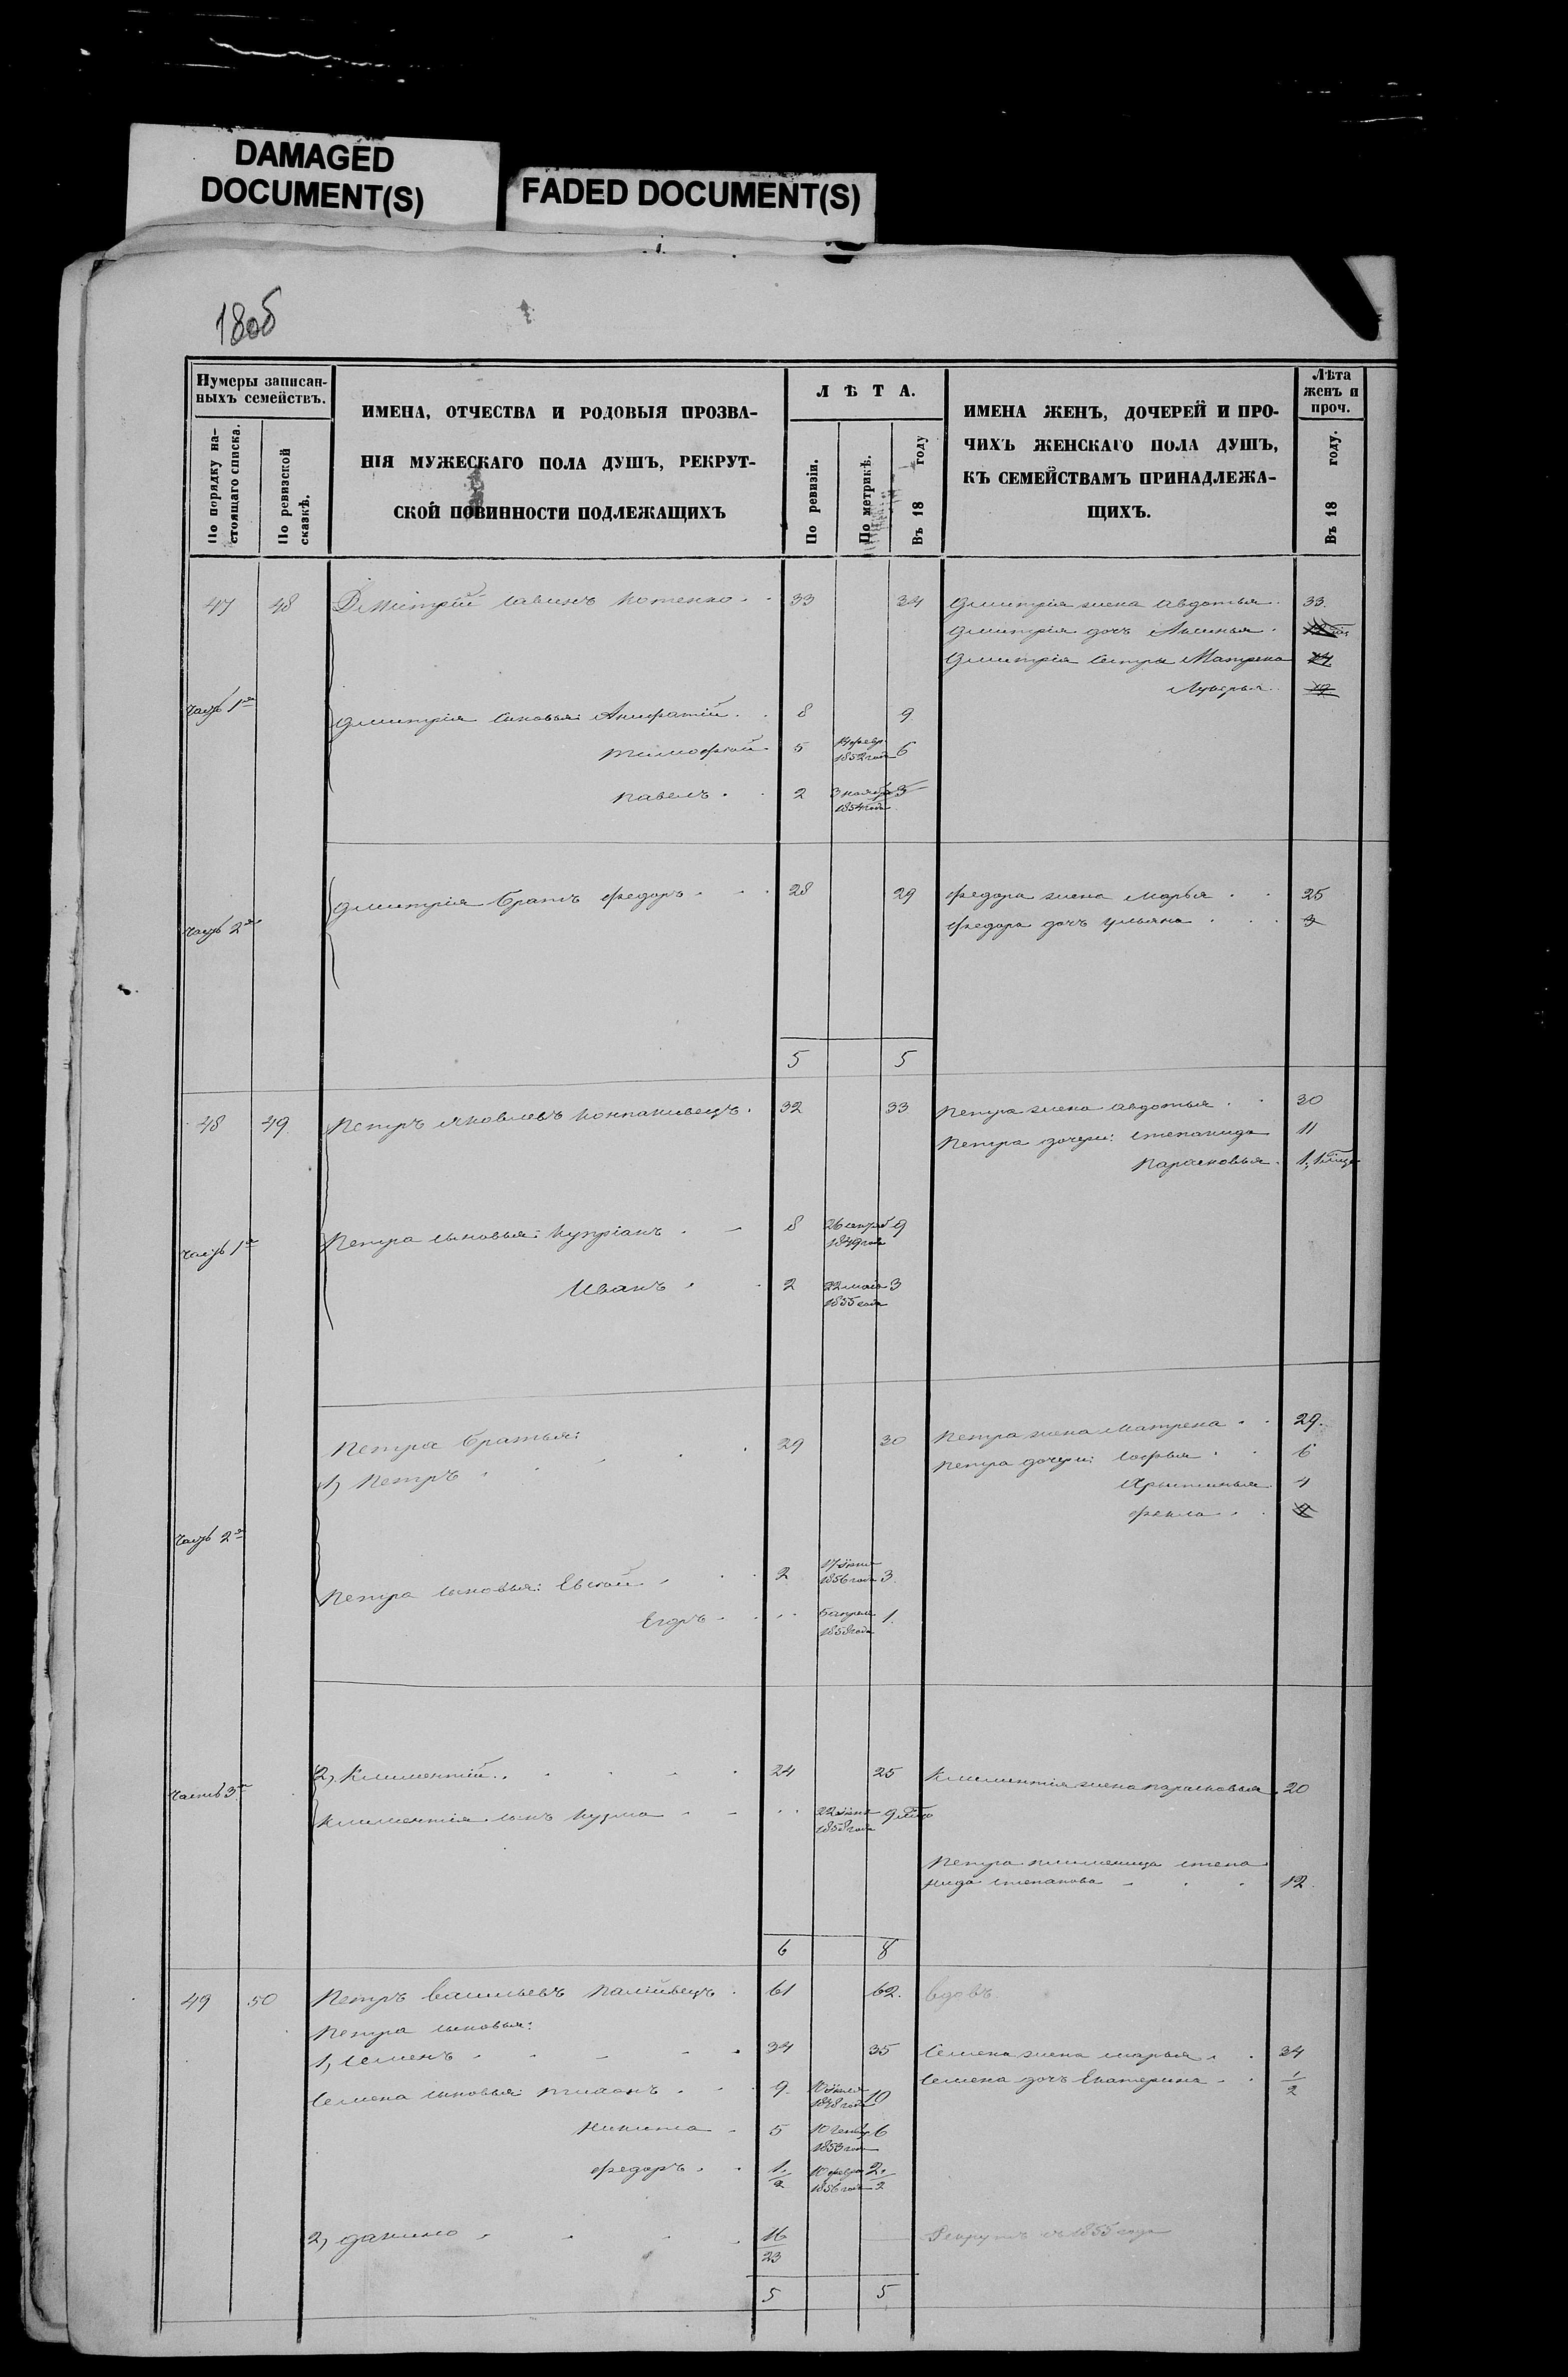 DAMAGED
DOCUMENT(S)
FADED DOCUMENT(S)
180б
Нумеры записан-
ныхъ семействъ.
По порядку на-
стоящаго списка.
По ревизской
сказкѣ.
ИМЕНА, ОТЧЕСТВА И РОДОВЫЯ ПРОЗВА-
НІЯ МУЖЕСКАГО ПОЛА ДУШЪ, РЕКРУТ-
СКОЙ ПОВИННОСТИ ПОДЛЕЖАЩИХЪ
ЛѢТА.
По ревизіи.
По метрикѣ.
Въ 18 году
ИМЕНА ЖЕНЪ, ДОЧЕРЕЙ И ПРО-
ЧИХЪ ЖЕНСКАГО ПОЛА ДУШЪ,
КЪ СЕМЕЙСТВАМЪ ПРИНАДЛЕЖА-
ЩИХЪ.
Лѣта
женъ и
проч.
Въ 18 году.
47 48 Дмитрій Савинъ Котенко 33 34 Дмитрія жена Авдотья 33
Дмитрія дочь Аксинья
Дмитрія сестры Матрена
Лукерья
Часть 1я
Дмитрія сыновья: Анифатій 8 9
Тимофей 5 февр. 1852 года 6
Павелъ 2 3 ноября 1854 года 3
Часть 2я
Дмитрія братъ Федоръ 28 29 Федора жена Марья 25
Федора дочь Ульяна 3
5 5
48 49 Петръ Яковлевъ 32 33 Петра жена Авдотья 30
Петра дочери: Степанида 11
Парасковья 1,1
Часть 1я
Петра сыновья: Купріанъ 8 26 сентяб 1849 года 9
Иванъ 2 22 маія 1855 года 3
Петра братья:
1, Петръ 29 30 Петра жена Матрена 29
Петра дочери: Софья 6
Хрыстинья 4
Фекла
Часть 2я
Петра сыновья: Евсей 2 17 1856 года 3
Егоръ 5 апреля 1858 года 1
Часть 3я
2, Климентій 24 25 Климентія жена Парасковья 20
Климентія сынъ Кузма 22 1858 года 9
Петра племеница Степа
нида Степанова 12
6 8
49 50 Петръ Васильевъ Палійвецъ 61 62 вдовъ
Петра сыновья:
1, Семенъ 34 35 Семена жена Марья 34
Семена дочь Екатерина 1/2
Семена сыновья: 9 10 1848 года 10
Никита 5 10 1853 года 6
Федоръ 1/2 10 февра 1856 года 2 1/2
2, Данило 16/23 Рекрутъ съ 1855 года
5 5